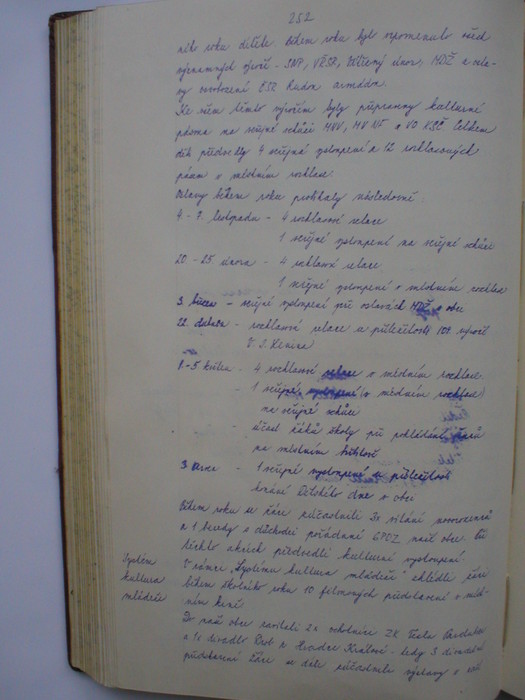 252
roku dítěte. Během roku bylo vzpomenuto všech
významných výročí - SNP, VŘSR, Vítězný únor, MDŽ a osla-
vy osvobození ČSR Rudou armádou.
Ke všem těmto výročím byly připraveny kulturní
pásma na veřejné schůzi MNV, MV NF a VO KSČ. Celkem
děti předvedly 4 veřejná vystoupení a 12 rozhlasových
pásem v místním rozhlase.
Oslavy během roku probíhaly následovně:
4 - 7. listopadu - 4 rozhlasové relace
1 veřejné vystoupení na veřejné schůzi
20 - 25. února - 4 rozhlasové relace
1 veřejné vystoupení v místním rozhlase
3. března - veřejné vystoupení při oslavách MDŽ v obci
22. dubna - rozhlasová relace u příležitosti 109. výročí
V. I. Lenina
1. - 5. května - 4 rozhlasové relace v místním rozhlase
- 1 veřejné vystoupení v místním rozhlase
na veřejné schůze
- účast žáků školy při pokládání
na místním hřbitově
3. června - 1 veřejné vystoupení u příležitosti
konání Dětského dne v obci
Během roku se žáci zúčastnili 3x vítání novorozenců
a 1 besedy s důchodci pořádané SPOZ naší obce. Při
těchto akcích předvedli kulturní vystoupení.
Systém
kultura
mládeže
V rámci "Systému kultura mládeži" zhlédli žáci
během školního roku 10 filmových představení v míst-
ním kině.
Do naší obce zavítali 2x ochotníci ZK Tesla Pardubice
a 1x divadlo z Hradce Králové - tedy 3 divadelní
představení. Žáci se dále zúčastnili výstavy v